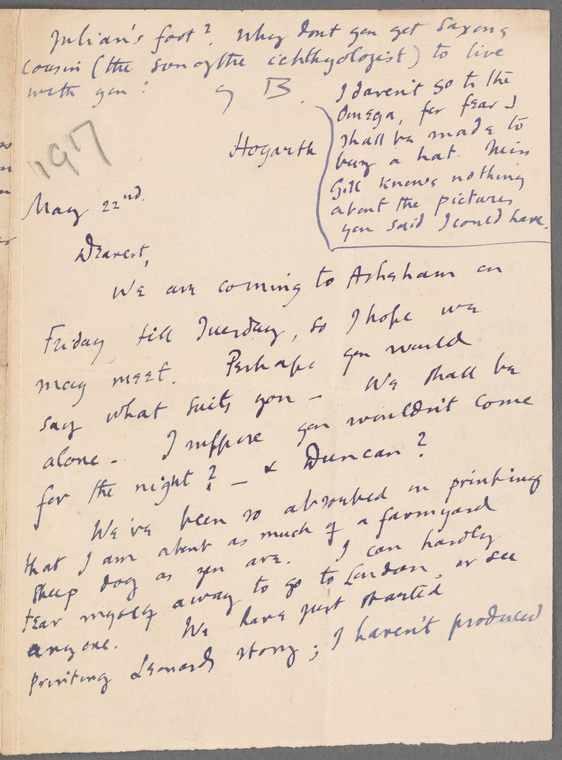 Julian's foot? Why dont you get Saxons
cousin (the son of the ichthyologist) to live
with you?
B.
I daren't go to the
Omega, for fear I
shall be made to
buy a hat. Miss
Gill knows nothing
about the pictures
you said I could have.
1917
Hogarth
May 22nd.
Dearest,
We are coming to Asheham on
Friday till Tuesday, so I hope we
may meet. Perhaps you would
say what suits you – We shall be
alone. I suppose you wouldn't come
for the night? – & Duncan?
We've been so absorbed in printing
that I am about as much of a farmyard
sheep dog as you are. I can hardly
tear myself away to go to London, or see
anyone. We have just started
printing Leonards story; I haven't produced